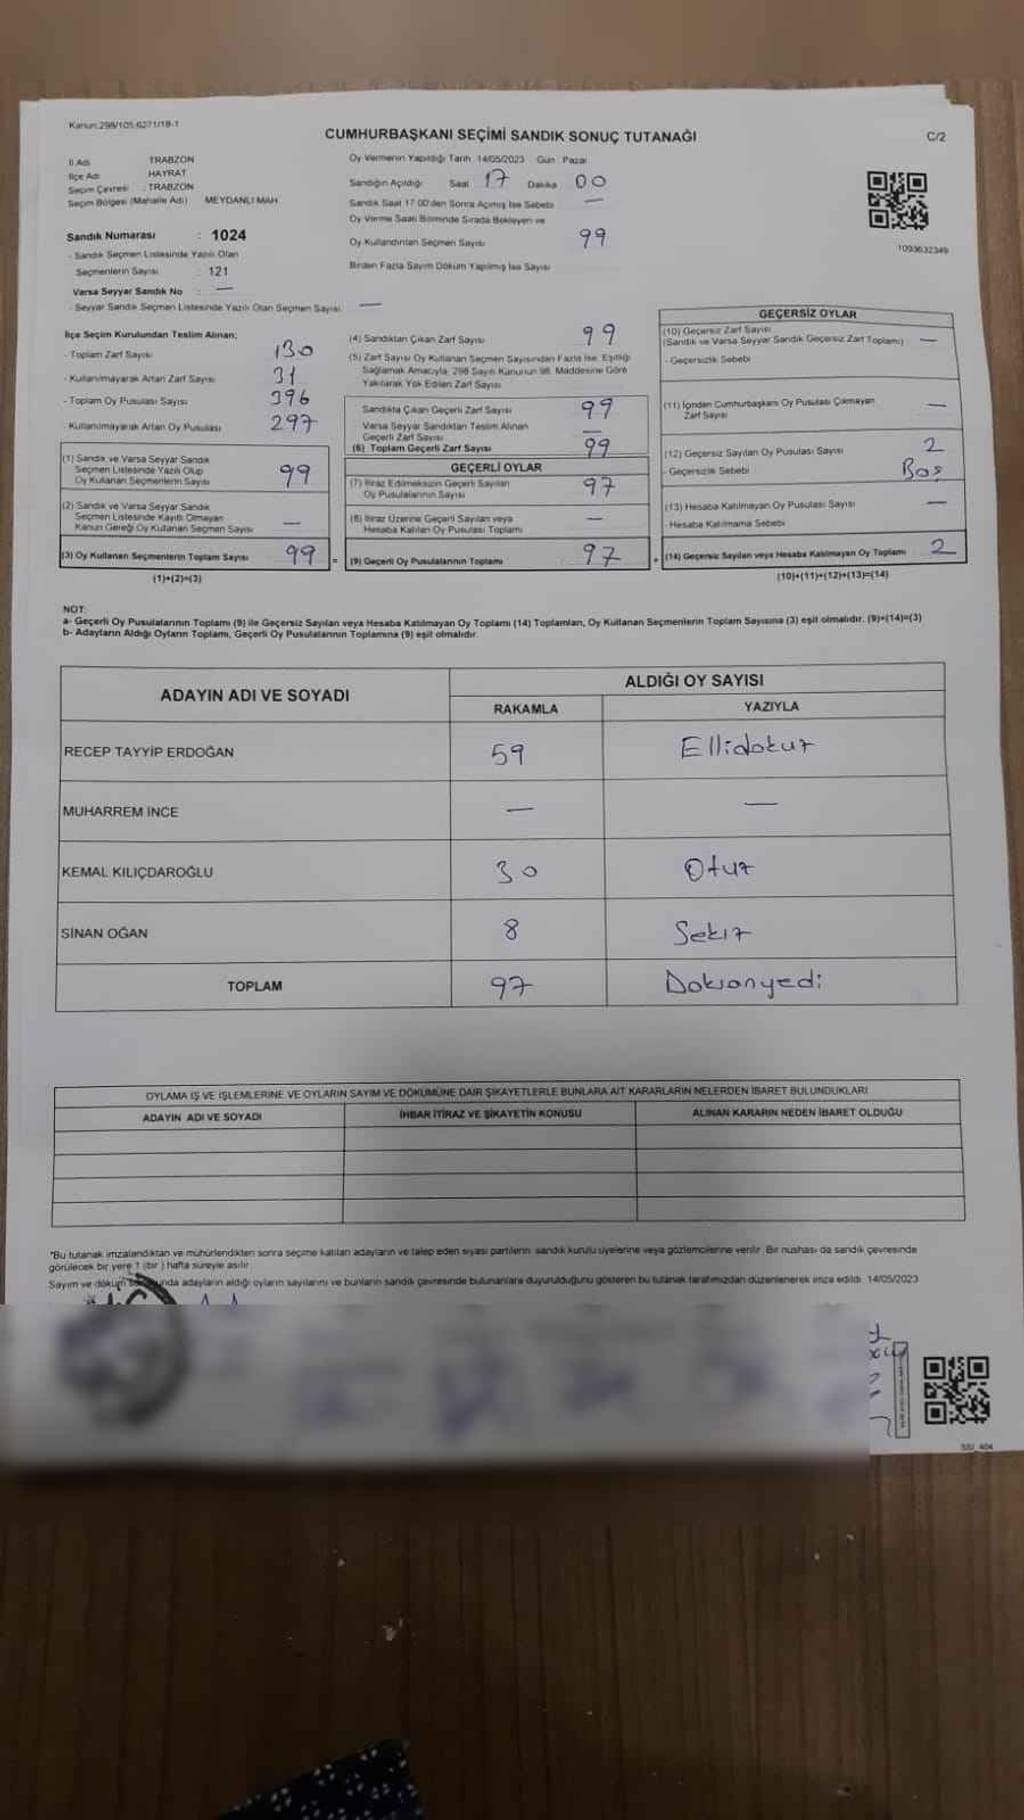 Kanun:298/105,6271/18-1
CUMHURBAŞKANI SEÇİMİ SANDIK SONUÇ TUTANAĞI
C/2
İl Adı TRABZON
İlçe Adı HAYRAT
Seçim Çevresi : TRABZON
Seçim Bölgesi (Mahalle Adı) MEYDANLI MAH
Oy Vermenin Yapıldığı Tarih 14/05/2023 Gün Pazar
Sandığın Açıldığı Saat 17 Dakika 00
Sandık Saat 17:00'den Sonra Açılmış İse Sebebi —
Oy Verme Saati Bitiminde Sırada Bekleyen ve
Oy Kullandırılan Seçmen Sayısı 99
Birden Fazla Sayım Döküm Yapılmış İse Sayısı
1093632349
Sandık Numarası : 1024
- Sandık Seçmen Listesinde Yazılı Olan
Seçmenlerin Sayısı : 121
Varsa Seyyar Sandık No : —
- Seyyar Sandık Seçmen Listesinde Yazılı Olan Seçmen Sayısı —
İlçe Seçim Kurulundan Teslim Alınan;
- Toplam Zarf Sayısı 130
- Kullanılmayarak Artan Zarf Sayısı 31
- Toplam Oy Pusulası Sayısı 396
- Kullanılmayarak Artan Oy Pusulası 297
(1) Sandık ve Varsa Seyyar Sandık
Seçmen Listesinde Yazılı Olup
Oy Kullanan Seçmenlerin Sayısı 99
(2) Sandık ve Varsa Seyyar Sandık
Seçmen Listesinde Kayıtlı Olmayan
Kanun Gereği Oy Kullanan Seçmen Sayısı —
(3) Oy Kullanan Seçmenlerin Toplam Sayısı 99 =
(1)+(2)=(3)
(4) Sandıktan Çıkan Zarf Sayısı 99
(5) Zarf Sayısı Oy Kullanan Seçmen Sayısından Fazla İse, Eşitliği
Sağlamak Amacıyla, 298 Sayılı Kanunun 98. Maddesine Göre
Yakılarak Yok Edilen Zarf Sayısı
Sandıkta Çıkan Geçerli Zarf Sayısı 99
Varsa Seyyar Sandıktan Teslim Alınan
Geçerli Zarf Sayısı —
(6) Toplam Geçerli Zarf Sayısı 99
GEÇERLİ OYLAR
(7) İtiraz Edilmeksizin Geçerli Sayılan
Oy Pusulalarının Sayısı 97
(8) İtiraz Üzerine Geçerli Sayılan veya
Hesaba Katılan Oy Pusulası Toplamı —
(9) Geçerli Oy Pusulalarının Toplamı 97 +
GEÇERSİZ OYLAR
(10) Geçersiz Zarf Sayısı
(Sandık ve Varsa Seyyar Sandık Geçersiz Zarf Toplamı) —
- Geçersizlik Sebebi
(11) İçinden Cumhurbaşkanı Oy Pusulası Çıkmayan
Zarf Sayısı —
(12) Geçersiz Sayılan Oy Pusulası Sayısı 2
- Geçersizlik Sebebi Boş
(13) Hesaba Katılmayan Oy Pusulası Sayısı —
- Hesaba Katılmama Sebebi
(14) Geçersiz Sayılan veya Hesaba Katılmayan Oy Toplamı 2
(10)+(11)+(12)+(13)=(14)
NOT:
a- Geçerli Oy Pusulalarının Toplamı (9) ile Geçersiz Sayılan veya Hesaba Katılmayan Oy Toplamı (14) Toplamları, Oy Kullanan Seçmenlerin Toplam Sayısına (3) eşit olmalıdır. (9)+(14)=(3)
b- Adayların Aldığı Oyların Toplamı, Geçerli Oy Pusulalarının Toplamına (9) eşit olmalıdır.
ADAYIN ADI VE SOYADI
ALDIĞI OY SAYISI
RAKAMLA YAZIYLA
RECEP TAYYİP ERDOĞAN 59 Ellidokuz
MUHARREM İNCE — —
KEMAL KILIÇDAROĞLU 30 Otuz
SİNAN OĞAN 8 Sekiz
TOPLAM 97 Doksanyedi
OYLAMA İŞ VE İŞLEMLERİNE VE OYLARIN SAYIM VE DÖKÜMÜNE DAİR ŞİKAYETLERLE BUNLARA AİT KARARLARIN NELERDEN İBARET BULUNDUKLARI
ADAYIN ADI VE SOYADI İHBAR İTİRAZ VE ŞİKAYETİN KONUSU ALINAN KARARIN NEDEN İBARET OLDUĞU
*Bu tutanak imzalandıktan ve mühürlendikten sonra seçime katılan adayların ve talep eden siyasi partilerin sandık kurulu üyelerine veya gözlemcilerine verilir. Bir nüshası da sandık çevresinde
görülecek bir yere 1 (bir) hafta süreyle asılır.
Sayım ve döküm adayların aldığı oyların sayılarını ve bunların sandık çevresinde bulunanlara duyurulduğunu gösteren bu tutanak tarafımızdan düzenlenerek imza edildi. 14/05/2023